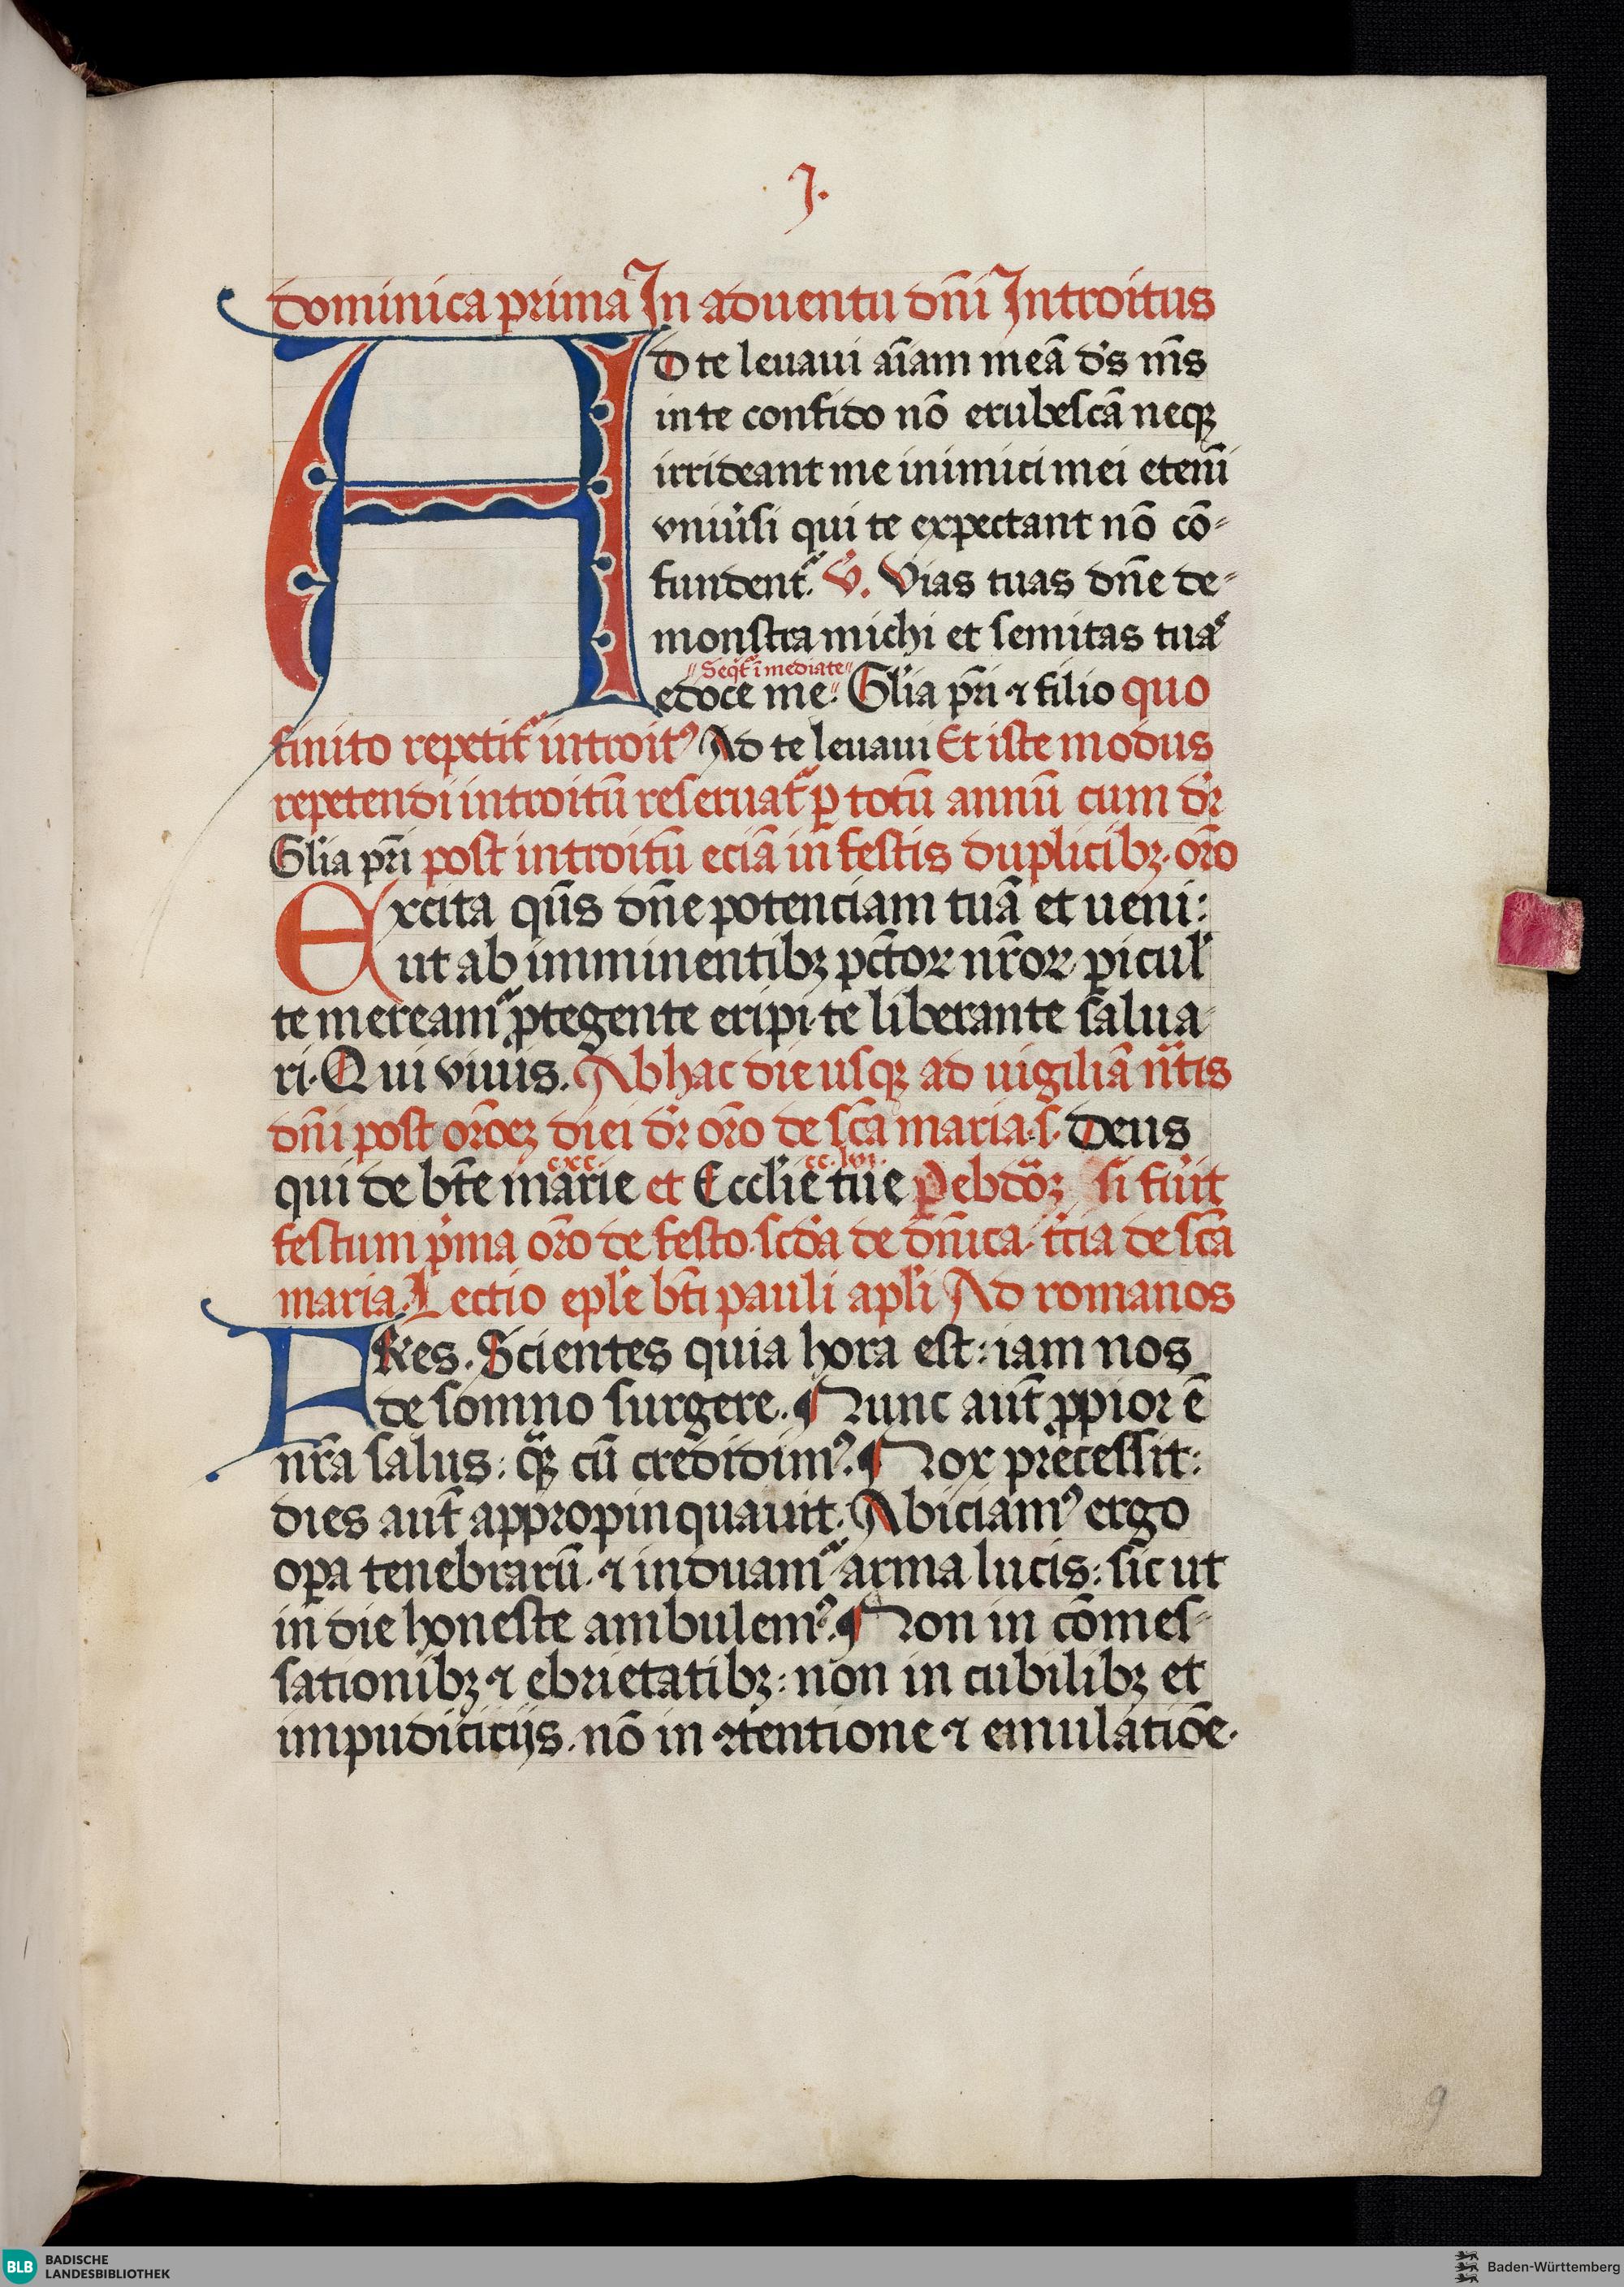 J.
dominica prima In aduentu dn̄i Introitus
Ad te leuaui aīam meā ds̄ m̄s
in te confido nō erubescā neqꝫ
irrideant me inimici mei etenī
vniūsi qui te expectant nō cō-
fundent᷑. v̄. Vias tuas dn̄e de-
monstra michi et semitas tuas
"Seqt᷑ īmediate"
edoce me. Glīa pr̄i ⁊ filio quo
finito repetit᷑ introitꝰ Ad te leuaui Et iste modus
repetendi introitū reseruat᷑ ꝑ totū annū cum dr̄
Glīa pr̄i post introitū eciā in festis duplicibꝫ. oro̅
Excita qūs dn̄e potenciam tuā et ueni:
ut ab imminentibꝫ pct̄oꝝ nr̄oꝝ ꝑicul̄
te meream᷑ ꝓtegente eripi. te liberante salua-
ri. Qui viuis. Ab hac die usqꝫ ad uigiliā nt̄is
dn̄i post oro̅eꝫ diei dr̄ oro̅ de scā maria. s. Deus
cxc. cc.lvi.
qui de bt̄e marie et Eccl̄ie tue ꝑ ebdōꝫ si fūit
festum p̄ma oro̅ de festo. scd̄a de dn̄ica. t̄cia de scā
maria. Lectio epl̄e bt̄i pauli apl̄i Ad romanos
Fr̄es. Scientes quia hora est: iam nos
de somno surgere. Nunc aut̄ ꝓpior ē
nr̄a salus: qꝫ cū credidimꝰ. Nox precessit:
dies aut̄ appropinquauit. Abiciamꝰ ergo
oꝑa tenebrarū. ⁊ induam᷑ arma lucis: sic ut
in die honeste ambulemꝰ. Non in cōmes-
sationibꝫ ⁊ ebrietatibꝫ: non in cubilibꝫ et
impudiciciis. nō in ↄtentione ⁊ emulatiōe.
9
BLB BADISCHE
LANDESBIBLIOTHEK
Baden-Württemberg